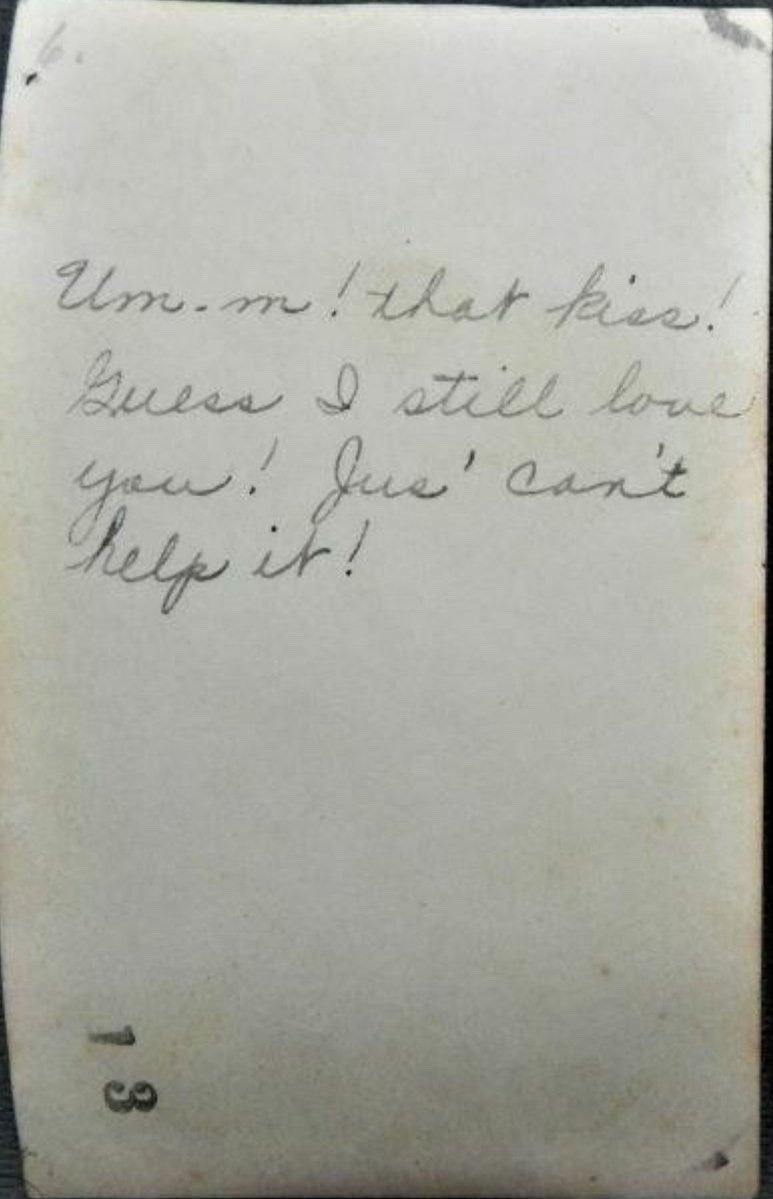 6.
Um-m! that kiss!
Guess I still love
you! Jus' can't
help it!
13